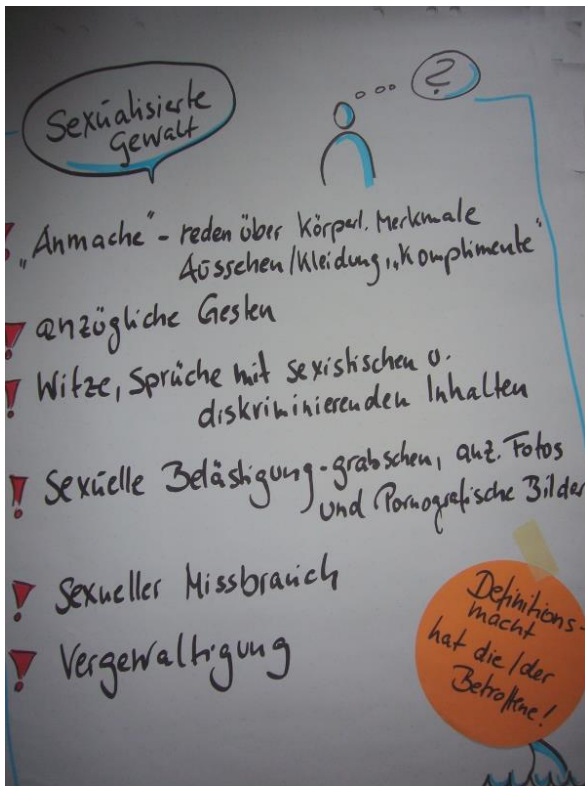 Sexualisierte
Gewalt
?
„Anmache" - reden über Körperl. Merkmale
Aussehen/Kleidung, „Komplimente"
anzügliche Gesten
Witze, Sprüche mit sexistischen o.
diskriminierenden Inhalten
Sexuelle Belästigung - grabschen, anz. Fotos
und Pornografische Bilder
Sexueller Missbrauch
Vergewaltigung
Definitions-
macht
hat die/der
Betroffene!